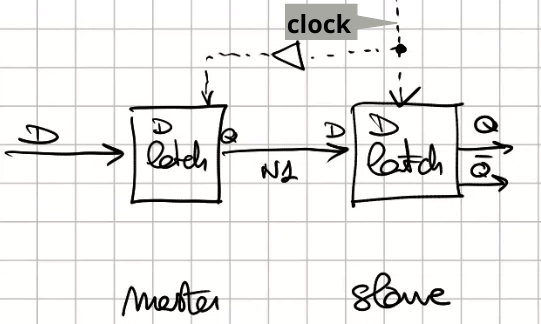 clock
D
D
latch
Q
N1
D
D
latch
Q
Q̅
master
slave